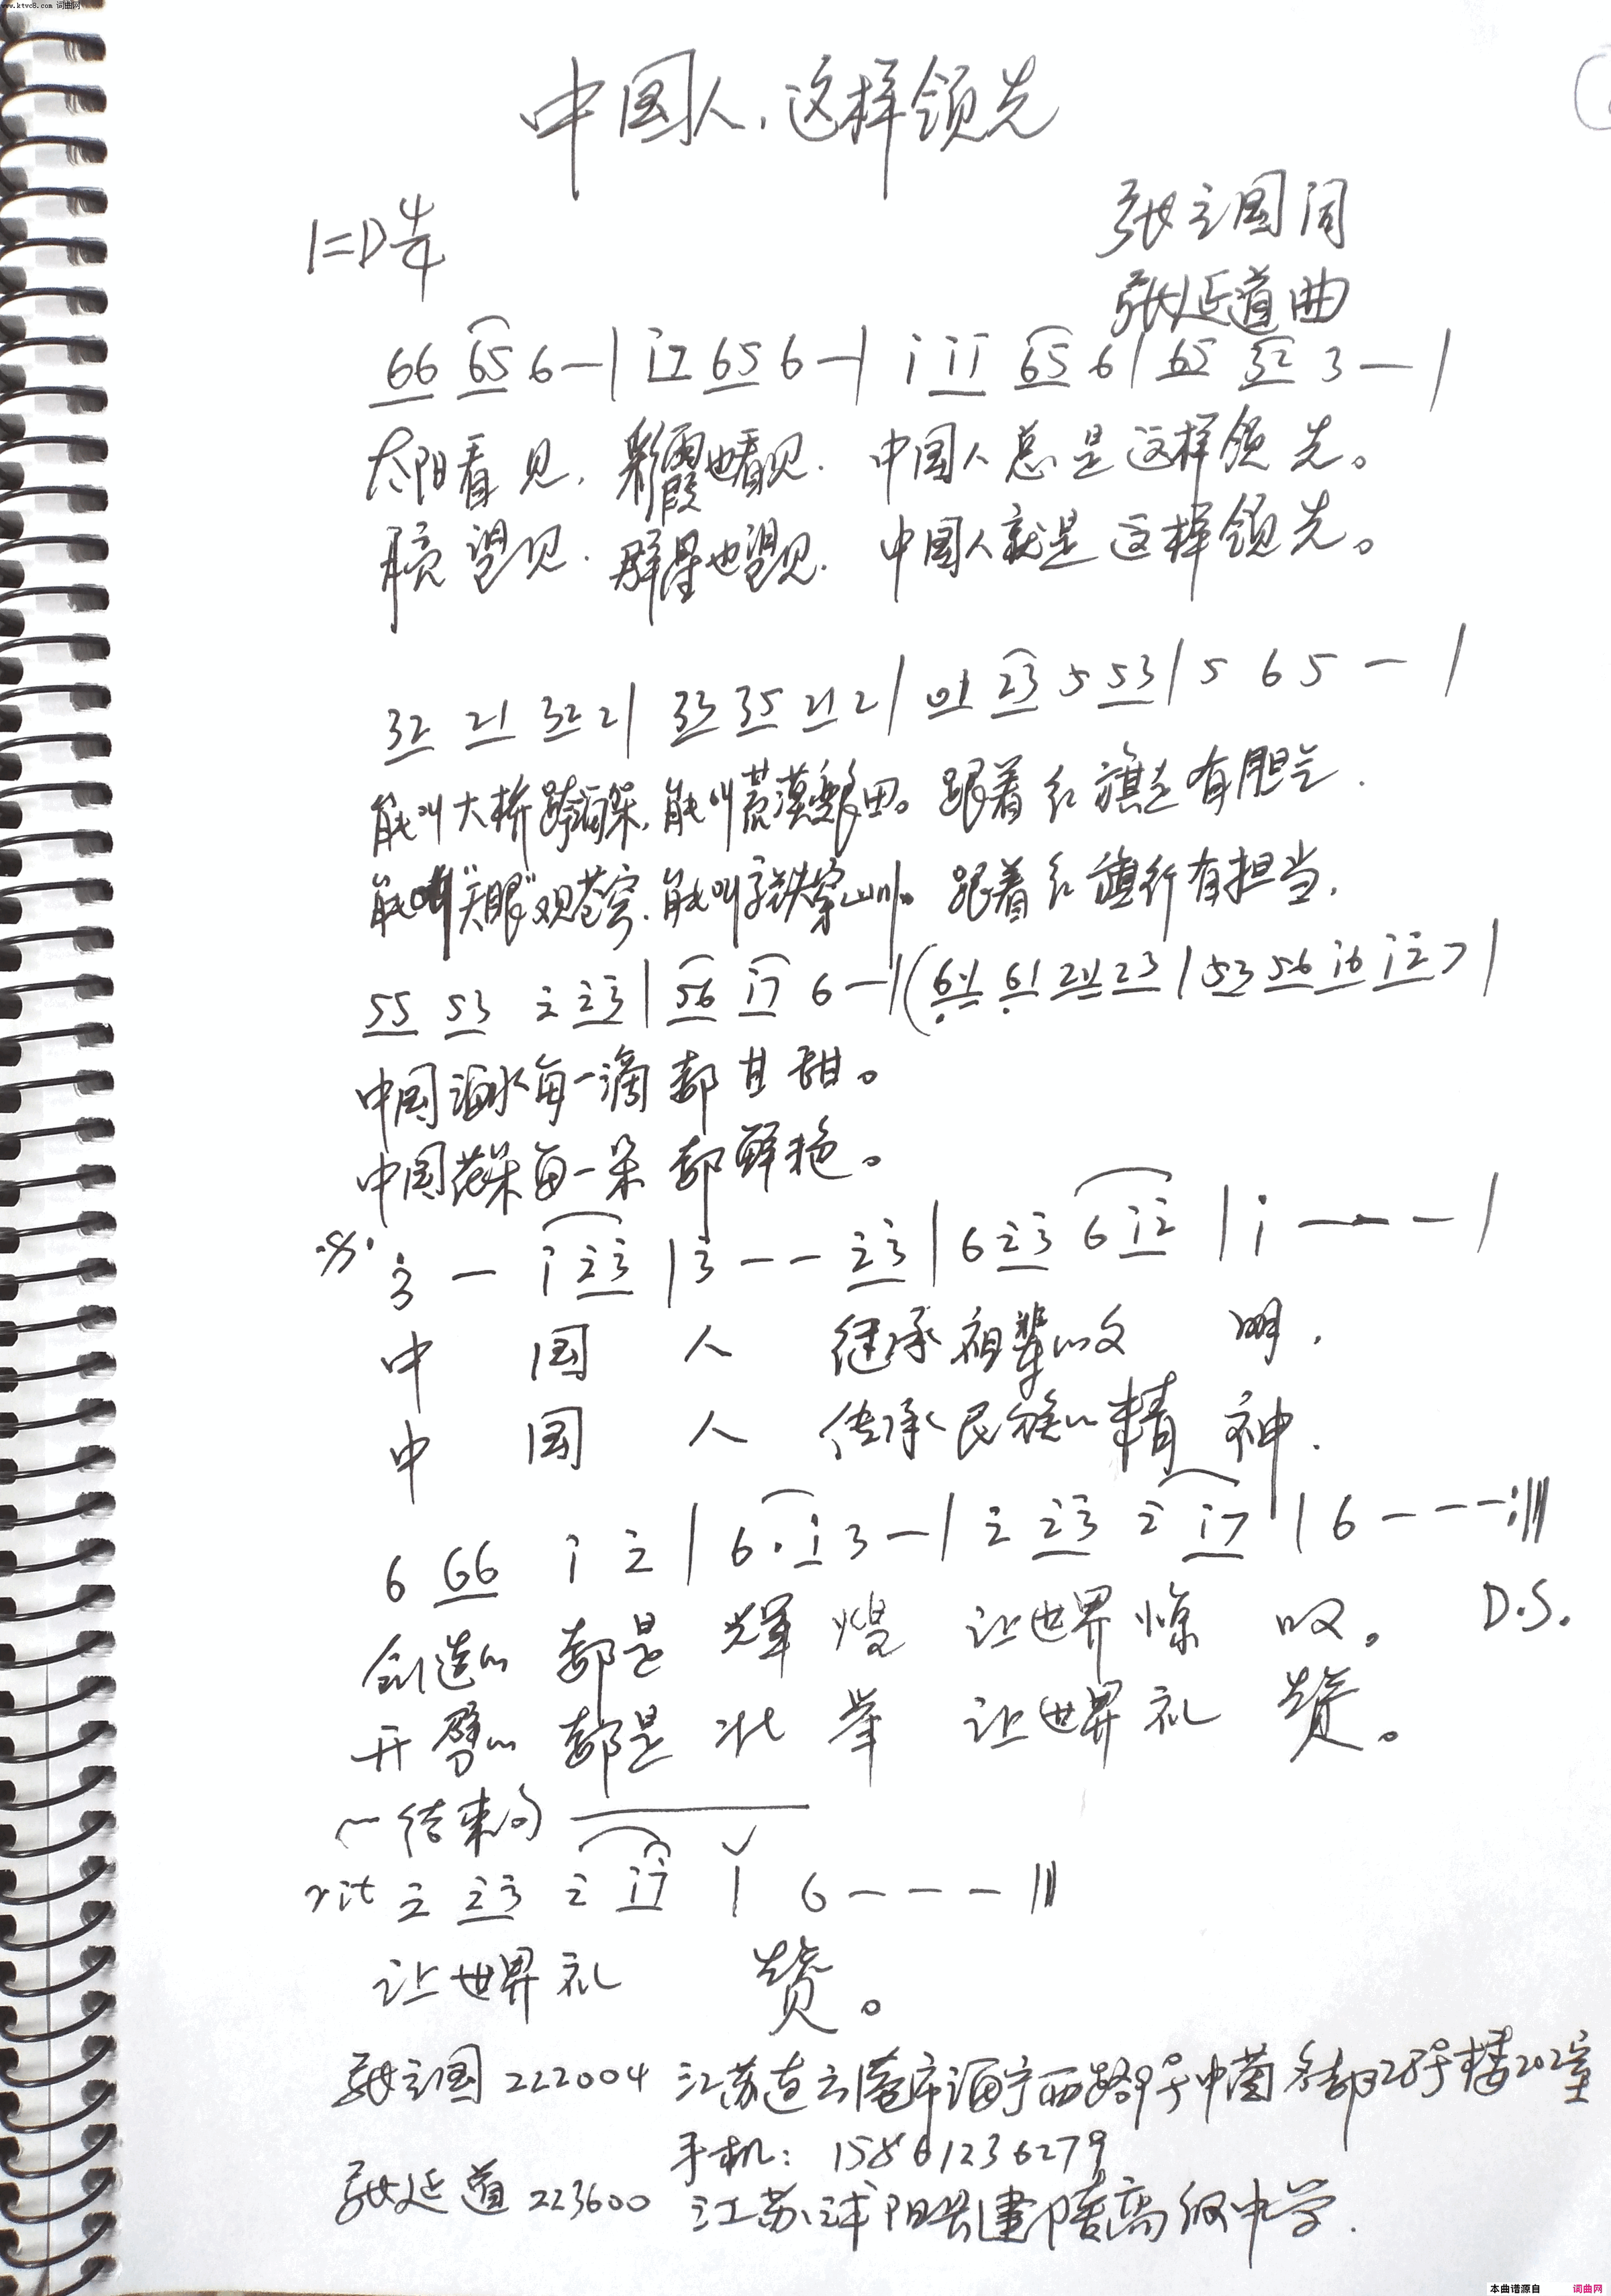 www.ktvc8.com 词曲网
中国人，这样领先
1=D 4/4
张立国词
张延道曲
66 65 6 — | i7 65 6 — | i ii 65 6 | 65 32 3 — |
太阳看见，彩霞也看见．中国人总是这样领先。
月亮望见．群星也望见．中国人就是这样领先。
32 21 32 2 | 33 35 21 2 | 01 23 5 53 | 5 6 5 — |
能叫大桥跨海深，能叫荒漠变良田。跟着红旗走有胆气．
能叫"天眼"观苍穹．能叫高铁穿山川。跟着红旗行有担当．
55 53 2 23 | 56 i7 6 — | (61 61 21 23 | 53 56 i6 i27 |
中国海水每一滴都甘甜。
中国花朵每一朵都鲜艳。
3 — i 23 | 3 — — 23 | 6 23 6 i2 | i — — — |
中 国 人 继承祖辈的文 明．
中 国 人 传承民族的精 神．
6 66 i 2 | 6. i 3 — | 2 23 2 i7 | 6 — — — :||
创造的 都是 辉 煌 让世界惊 叹。 D.S.
开劈的 都是 壮 举 让世界礼 赞。
结束句
rit 2 23 2 i7 | 6 — — — ||
让世界礼 赞。
张立国 222004 江苏连云港市海宁西路9号中茵名都25号楼202室
手机：15861236279
张延道 223600 江苏沭阳县建陵高级中学．
本曲谱源自 词曲网